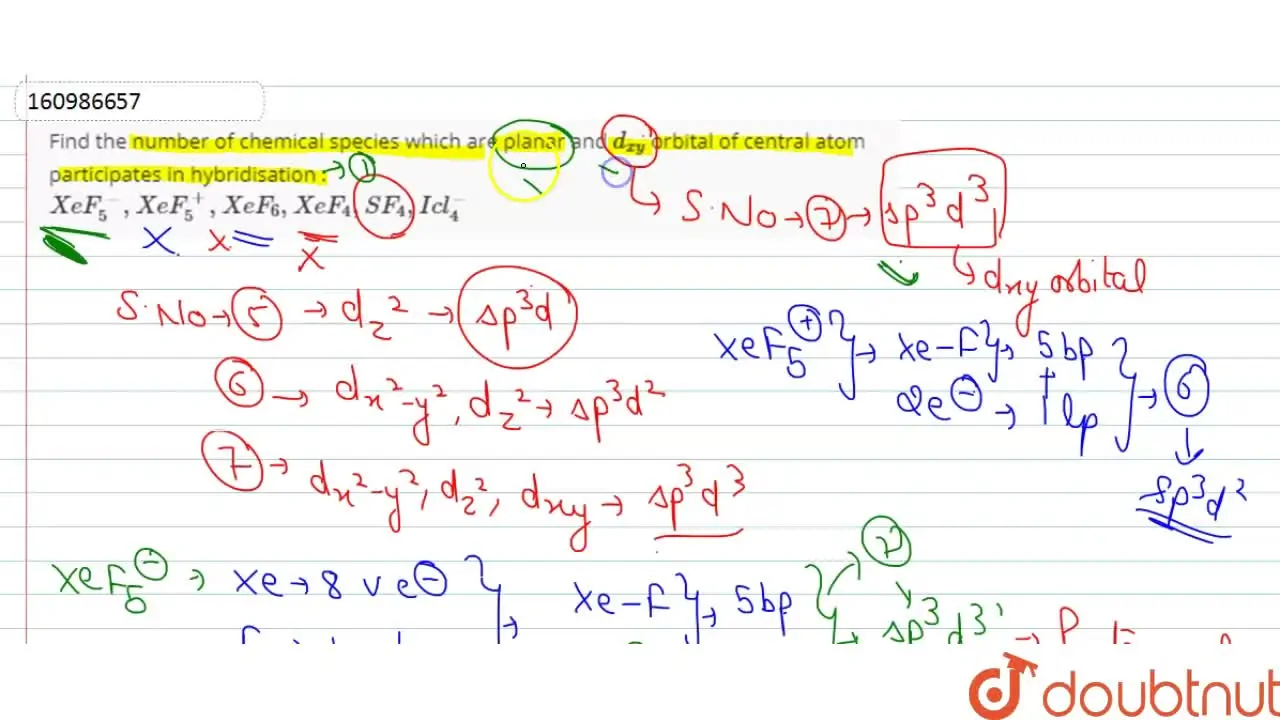 160986657
Find the number of chemical species which are planar and d_xy orbital of central atom
participates in hybridisation : → ①
XeF₅⁻, XeF₅⁺, XeF₆, XeF₄, SF₄, Icl₄⁻
S.No → 7 → sp³d³
dxy orbital
S.No → 5 → dz² → sp³d
6 → dx²-y², dz² → sp³d²
7 → dx²-y², dz², dxy → sp³d³
XeF₅⊕ } → Xe-F} → 5bp } → 6
2e⊖ → 1 lp
sp³d²
XeF₅⊖ → Xe → 8 ve⊖ } → Xe-F} → 5bp } → 7
sp³d³
doubtnut